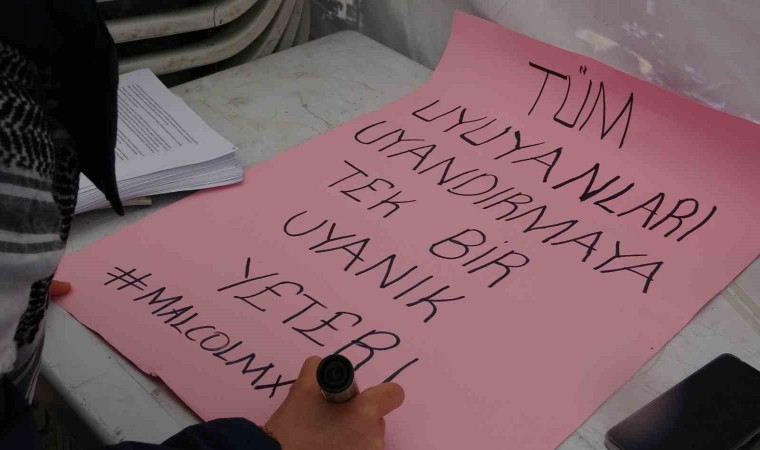 TÜM
UYUYANLARI
UYANDIRMAYA
TEK BİR
UYANIK
YETER!
#MALCOLMX